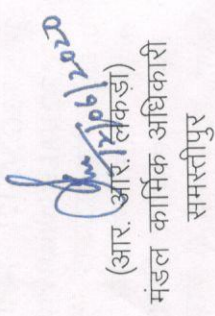 12/06/2020
(आर. आर. लकड़ा)
मंडल कार्मिक अधिकारी
समस्तीपुर